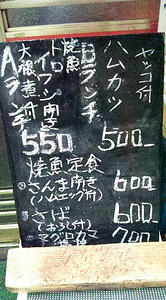 Aランチ
大根煮付
トロイワシ開き
焼魚
550
Bランチ
ハムカツ
ヤッコ付
500-
焼魚定食
さんま開き
(ハムエッグ付)
600
さば
600
700